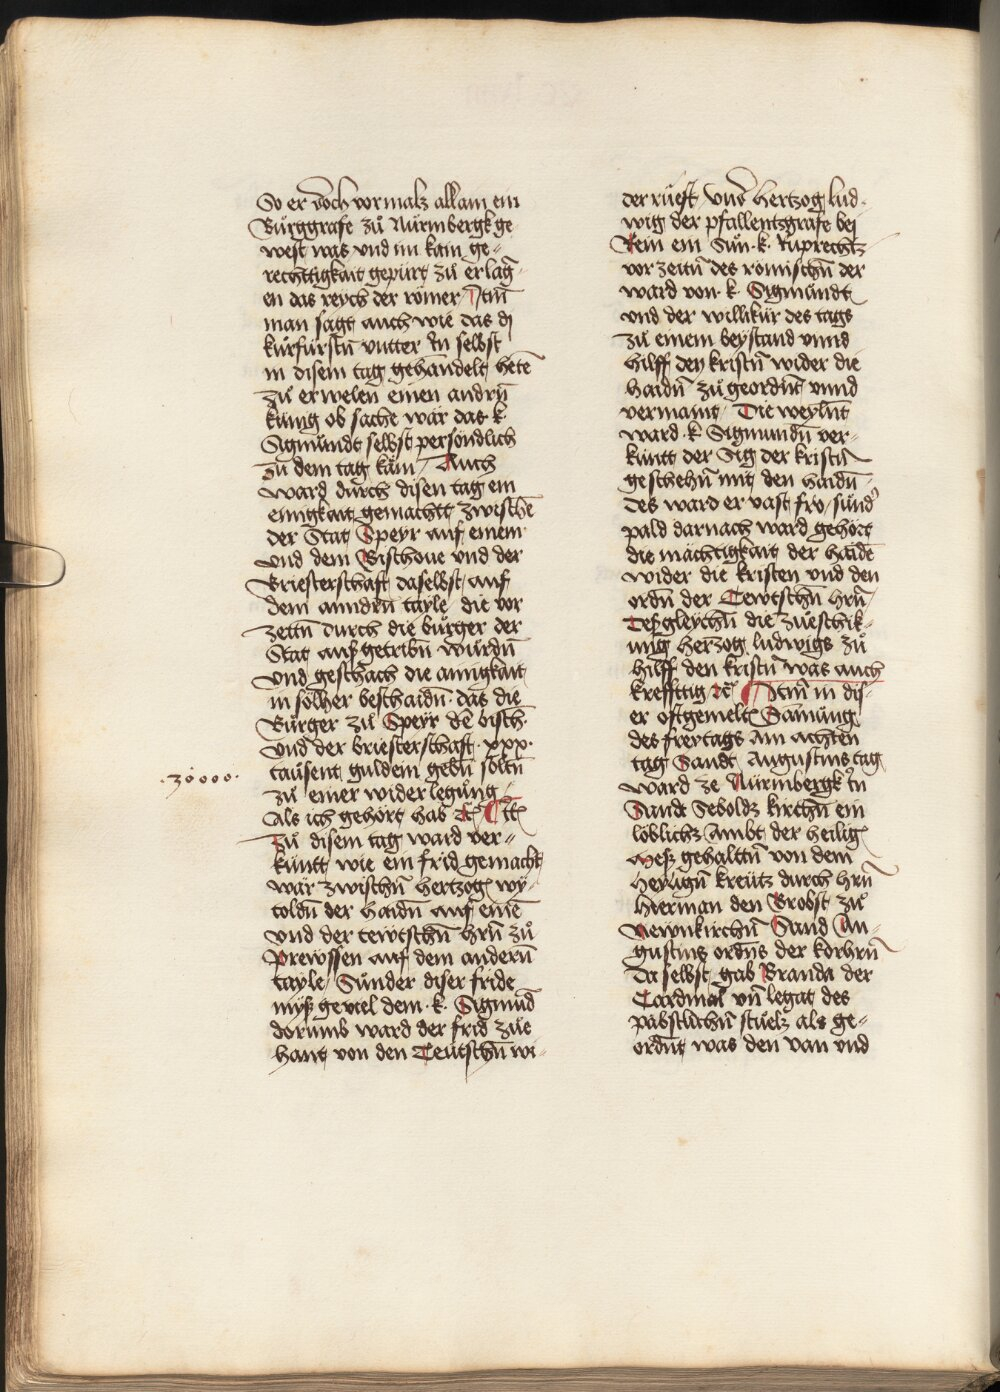 So er doch vormalz allain ein
Bůrggrafe zů Nůrmbergk ge
west was und im kain ge-
rechttigkait gepürt zů erlag̃-
en das reych der römer Itm̃
man sagt auch wie das di
kůrfürstñ untter In selbst
in disem tag gehandelt hetẽ
zů erwelen einen andrñ
kúnig ob sache wär das k.
Sigmůndt selbst persöndlich
zů dem tag käm / Auch
ward durch disen tag ein
einigkait gemachtt zwischẽ
der Stat Speyr auf einem
und dem Bischoue und der
Briesterschaft daselbst auf
dem anndrñ tayle die vor
zeittñ durch die bůrger der
Stat auß getribñ wůrdñ
und geschach die ainigkait
in sölher beschaidñ das die
Bůrger zů Speyr dẽ bisch.
und der briesterschaft .xxx.
taůsent guldein gebñ soltñ
.30000.
zů einer widerlegůng /
Als ich gehört hab ⁊c̃ Itt̃
Zů disem tag ward ver-
kůntt wie ein frid gemacht
wär zwischñ hertzog wy-
toldñ der haidñ auf einẽ
und der tewtschñ hrñ zů
Prewssen auf dem anderñ
tayle / Sůnder diser fride
myß geviel dem .k. Sigmũd
dorumb ward der frid zůe
hant von den Teůtschñ wi-
der růeft / Und hertzog lud-
wig der pfallentzgrafe bei
Rein ein Sůn .k. Růprechtz
vor zeitñ des römischñ der
ward von .k. Sigmůndt
und der willikůr des tags
zů einem beystand unnd
hilff den kristñ wider die
haidñ zů geordn̄t unnd
vermaint / Die weyln̄t
ward .k. Sigmundñ ver-
kůntt der Sig der kristñ
geschehñ mit den haidñ-
des ward er vast fro / sund'
pald darnach ward gehört
die mächtigkait der haidẽ
wider die kristen und den
ordñ der Tewtschñ hrñ /
Deßgleychñ die zůeschik-
ung hertzog ludwigs zů
hilff den kristñ was auch
krefftig ⁊c̃ Itm̃ in dis-
er oftgemelt̃ Samůng
des freytags am achten
tag Sandt Augustins tag
ward ze Nůrmbergk In
Sandt Seboldz kirchñ ein
löblichs Ambt der heilig̃
Meß gehalttñ von dem
heyligñ kreütz durch hrñ
hierman den Brobst zů
Newnkirchñ Sand Au-
gustins ordñs der korhrñ
Da selbst gab Branda der
Cardinal uñ legat des
pabstlichñ stůelz als ge-
ordn̄t was den van und